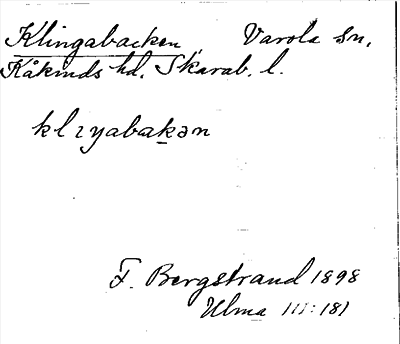 Klingabacken, Varola sn,
Kåkinds hd, Skarab. l.
klıŋabakən
F. Bergstrand 1898
Ulma III:181